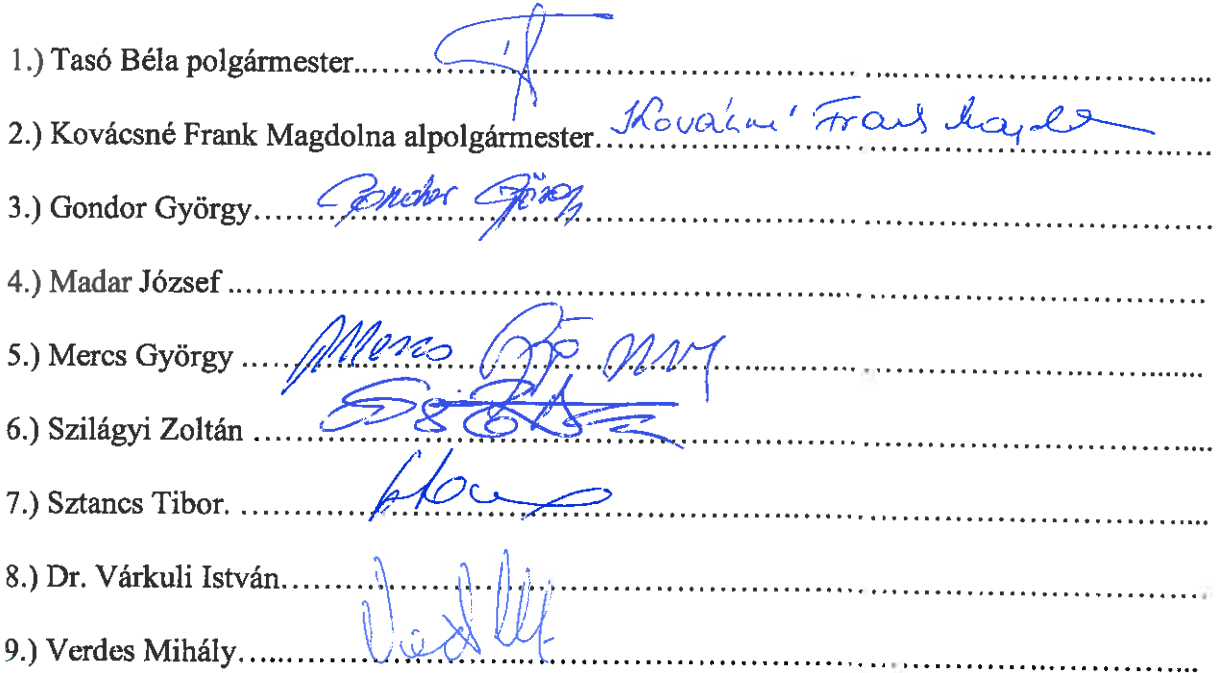 1.) Tasó Béla polgármester..........
2.) Kovácsné Frank Magdolna alpolgármester.......... Kovácsné Frank Magdolna
3.) Gondor György.......... Gondor György
4.) Madar József ..........
5.) Mercs György .......... Mercs György
6.) Szilágyi Zoltán ..........
7.) Sztancs Tibor. ..........
8.) Dr. Várkuli István..........
9.) Verdes Mihály..........